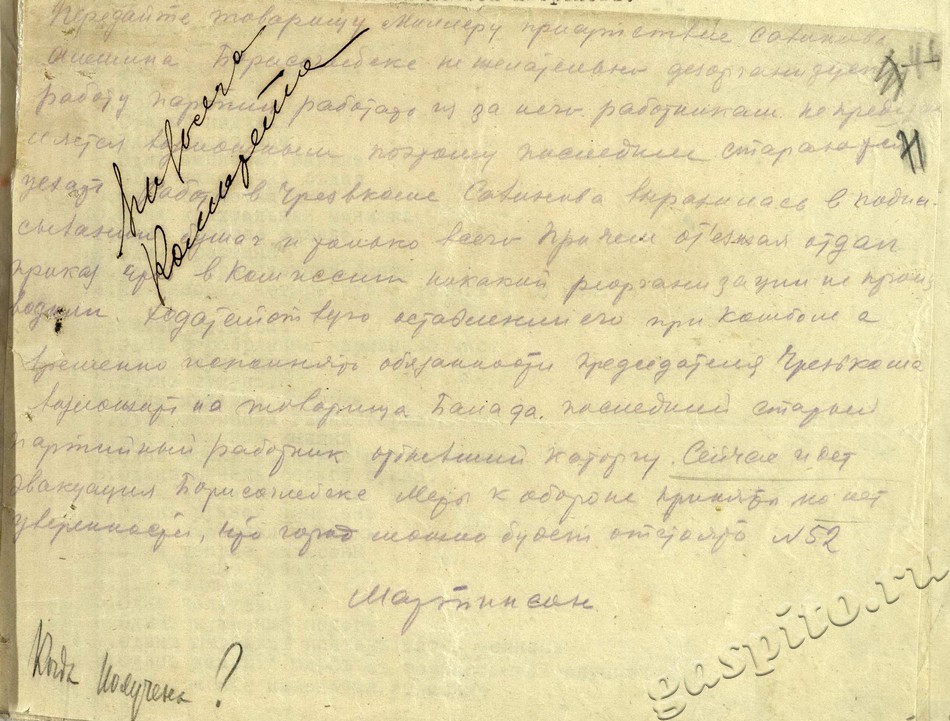 Передайте товарищу Миллеру присутствие Савинова
Борисоглебске нежелательно дезорганизует
работу партии работать из за него работникам не предста
вляется возможным поэтому последние стараются
уехать Работа в Чрезвкоме Савинова выразилась в подпи
сывании бумаг и только всего Причем отъезжая отдал
приказ в Комиссии никакой реорганизации не произ
водили. Ходатайствую оставлении его при Комбоме а
временно исполнять обязанности председателя Чрезвкома
возложить на товарища Балада. последний старый
партийный работник отбывший каторгу. Сейчас идет
эвакуация Борисоглебске Меры к обороне приняты но нет
уверенности, что город можно будет отстоять N52
Мартинсон
Комитета
Когда получена?
41
gaspito.ru